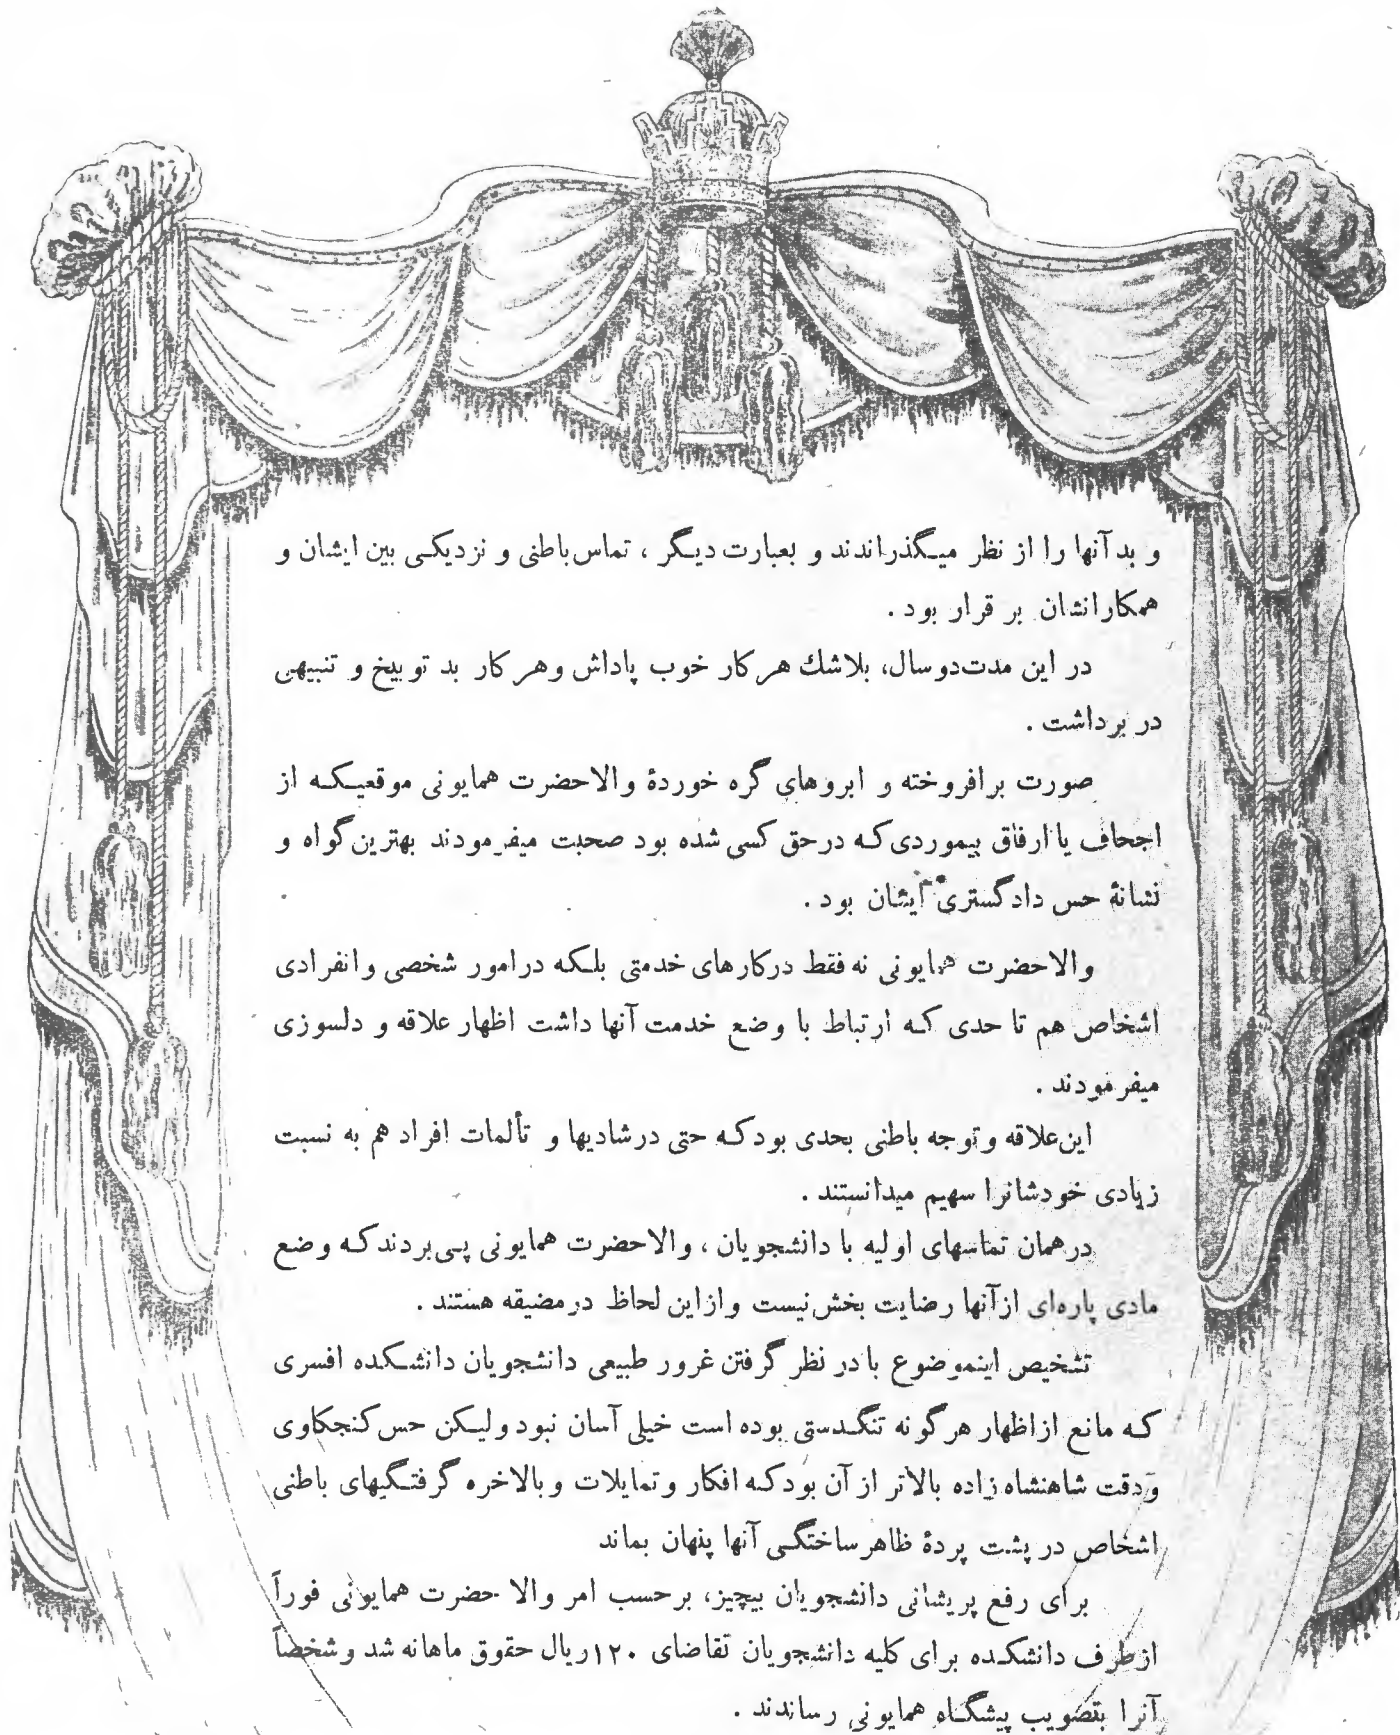 و بد آنها را از نظر میگذراندند و بعبارت دیگر ، تماس باطنی و نزدیکی بین ایشان و
همکارانشان بر قرار بود .
در این مدت دو سال، بلاشك هر کار خوب پاداش وهر کار بد توبیخ و تنبیهی
در برداشت .
صورت برافروخته و ابروهای گره خوردهٔ والاحضرت همایونی موقعیکه از
اجحاف یا ارفاق بیموردی که درحق کسی شده بود صحبت میفرمودند بهترین گواه و
نشانهٔ حس دادگستری ایشان بود .
والاحضرت همایونی نه فقط درکارهای خدمتی بلکه درامور شخصی وانفرادی
اشخاص هم تا حدی که ارتباط با وضع خدمت آنها داشت اظهار علاقه و دلسوزی
میفرمودند .
این علاقه وتوجه باطنی بحدی بودکه حتی درشادیها و تألمات افراد هم به نسبت
زیادی خودشانرا سهیم میدانستند .
درهمان تماسهای اولیه با دانشجویان ، والاحضرت همایونی پی بردندکه وضع
مادی پاره‌ای ازآنها رضایت بخش نیست وازاین لحاظ درمضیقه هستند .
تشخیص اینموضوع با در نظر گرفتن غرور طبیعی دانشجویان دانشکده افسری
که مانع ازاظهار هرگونه تنگدستی بوده است خیلی آسان نبود ولیکن حس کنجکاوی
ودقت شاهنشاه زاده بالاتر از آن بودکه افکار وتمایلات وبالاخره گرفتگیهای باطنی
اشخاص در پشت پردهٔ ظاهرساختگی آنها پنهان بماند
برای رفع پریشانی دانشجویان بیچیز، برحسب امر والا حضرت همایونی فوراً
ازطرف دانشکده برای کلیه دانشجویان تقاضای ۱۲۰ریال حقوق ماهانه شد وشخصاً
آنرا بتصویب پیشگاه همایونی رساندند .